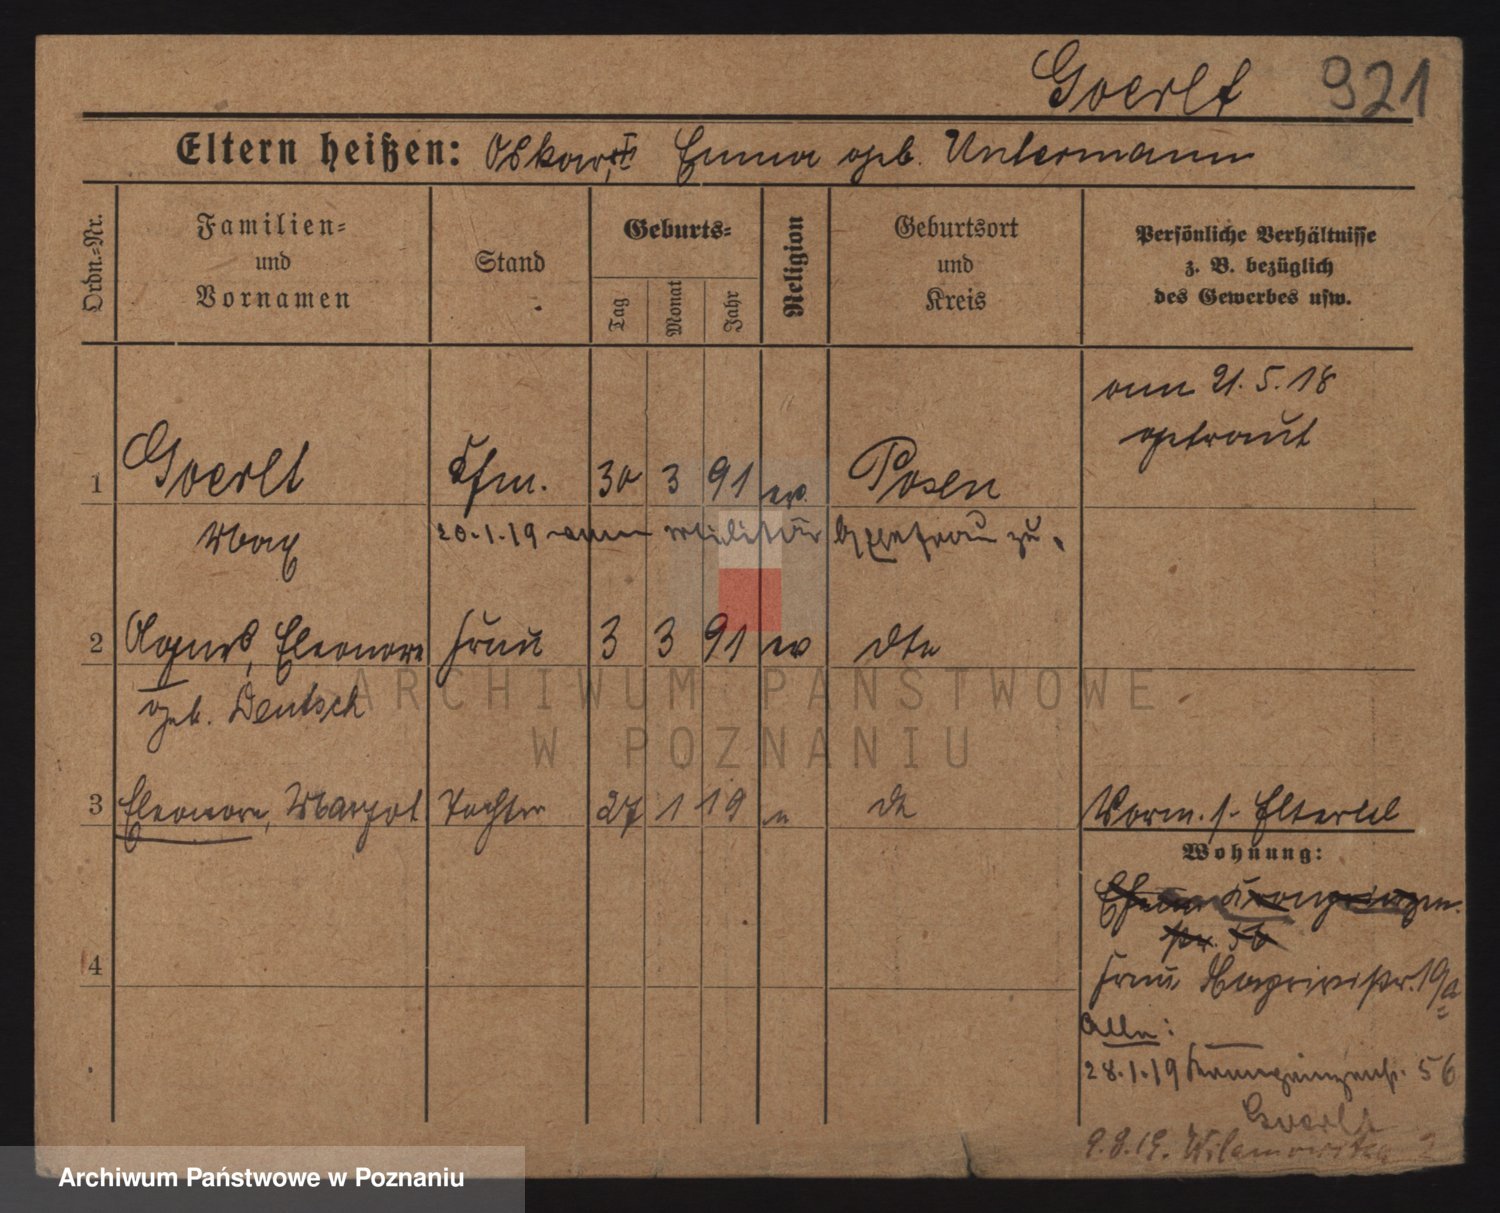 Goerlt 921
Eltern heißen: Oskar, Emma geb. Untermann
Ordn.-Nr.
Familien-
und
Vornamen
Stand
Geburts-
Tag
Monat
Jahr
Religion
Geburtsort
und
Kreis
Persönliche Verhältnisse
z. B. bezüglich
des Gewerbes usw.
am 21.5.18
getraut
1 Goerlt Kfm. 30 3 91 ev. Posen
Max 20.1.19 vom Militär zu.
2 Agnes, Eleonore Frau 3 3 91 ev dto
geb. Deutsch
3 Eleonore, Margot Tochter 27 1 19 e dto
Vorm. s. Elternbl
Wohnung:
str. 56
4
Frau str. 19a
Alle:
28.1.19 Kronprinzenstr. 56
Goerlt
9.8.19. 2
ARCHIWUM PAŃSTWOWE
W POZNANIU
Archiwum Państwowe w Poznaniu